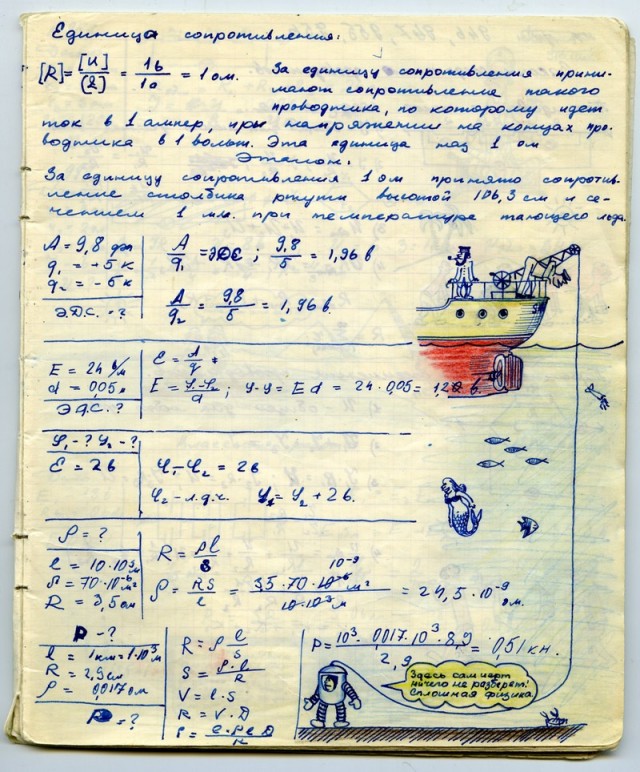 Единица сопротивления:
[R] = [U]/(I) = 1в/1а = 1 ом. За единицу сопротивления прини-
мают сопротивление такого
проводника, по которому идет
ток в 1 ампер, при напряжении на концах про-
водника в 1 вольт. Эта единица наз 1 ом
Эталон.
За единицу сопротивления 1 ом принято сопротив-
ление столбика ртути высотой 106,3 см и се-
чением 1 мм. при температуре тающего льда.
A = 9,8 дж
q₁ = +5 к
q₂ = -5 к
Э.Д.С. = ?
A/q₁ = ЭДС; 9,8/5 = 1,96 в
A/q₂ = 9,8/5 = 1,96 в.
E = 24 в/м
d = 0,05 м
Э.Д.С. ?
Ɛ = A/q
E = φ-φ₂/d; φ-φ = Ed = 24·0,05 = 1,2 в.
φ₁-? φ₂-?
Ɛ = 2в
φ₁-φ₂ = 2в
φ₂ = φ₂ + 2в.
ρ = ?
l = 10·10³м
S = 70·10⁻⁶м²
R = 3,5 ом
R = ρl/S
ρ = RS/l = 3,5·70·10⁻⁶м²/10·10³м = 24,5·10⁻⁹
10⁻⁹
ом.
P - ?
l = 1км = 1·10³м
R = 2,9 ом
ρ = 0,017 ом
P = ?
R = ρ l/S
S = ρ·l/R
V = l·S
P = V·D
P = l·ρlD/R
P = 10³·0,017·10³·8,9/2,9 = 0,51 кн.
Здесь сам черт
ничего не разберет!
Сплошная физика.